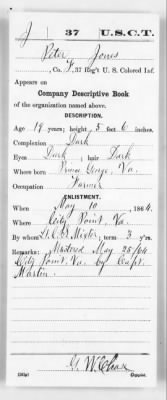 J | 37 | U.S.C.T.
Peter Jones
, Co. F, 37 Reg't U. S. Colored Inf.
Appears on
Company Descriptive Book
of the organization named above.
DESCRIPTION.
Age 19 years; height 5 feet 6 inches.
Complexion Dark
Eyes Dark; hair Dark
Where born Prince George, Va.
Occupation Farmer
ENLISTMENT.
When May 10, 1864.
Where City Point, Va.
By whom ; term 3 y'rs.
Remarks: Mustered May 25/64
City Point, Va. by Capt.
Martin.
G. W. Chase
Copyist.